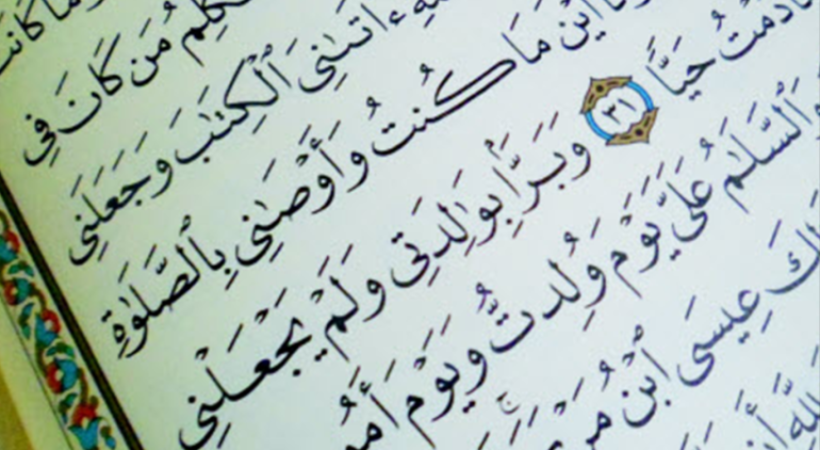 وَمَا كَانَتْ
نُكَلِّمُ مَن كَانَ فِي
ءَاتَىٰنِيَ ٱلْكِتَٰبَ وَجَعَلَنِي
أَيْنَ مَا كُنتُ وَأَوْصَٰنِي بِٱلصَّلَوٰةِ
مَا دُمْتُ حَيًّا ٣١ وَبَرًّۢا بِوَٰلِدَتِي وَلَمْ يَجْعَلْنِي
وَٱلسَّلَٰمُ عَلَيَّ يَوْمَ وُلِدتُّ وَيَوْمَ أَمُو
لِكَ عِيسَى ٱبْنُ مَرْ
لِلَّهِ أَن